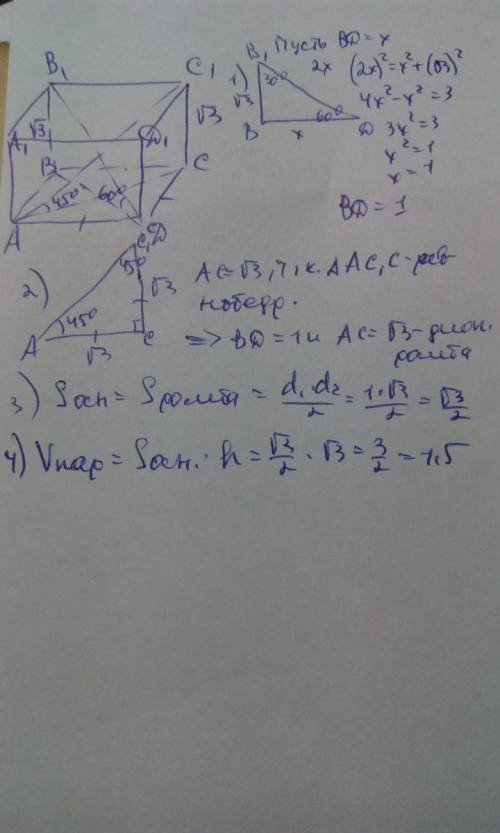 B₁
C₁
√3
A₁
D₁
√3
B
C
45°
60°
A
D
1) Пусть BD = x
B₁
30°
√3
2x
B
x
60°
D
(2x)² = x² + (√3)²
4x² - x² = 3
3x² = 3
x² = 1
x = 1
BD = 1
2)
C₁
45°
√3
A
45°
√3
C
AC = √3, т.к. △AC₁C - рав
нобедр.
=> BD = 1 и AC = √3 - диаг.
ромба
3) Sосн = Sромба = d₁ d₂ / 2 = 1·√3 / 2 = √3 / 2
4) Vпар = Sосн. · h = √3 / 2 · √3 = 3 / 2 = 1,5